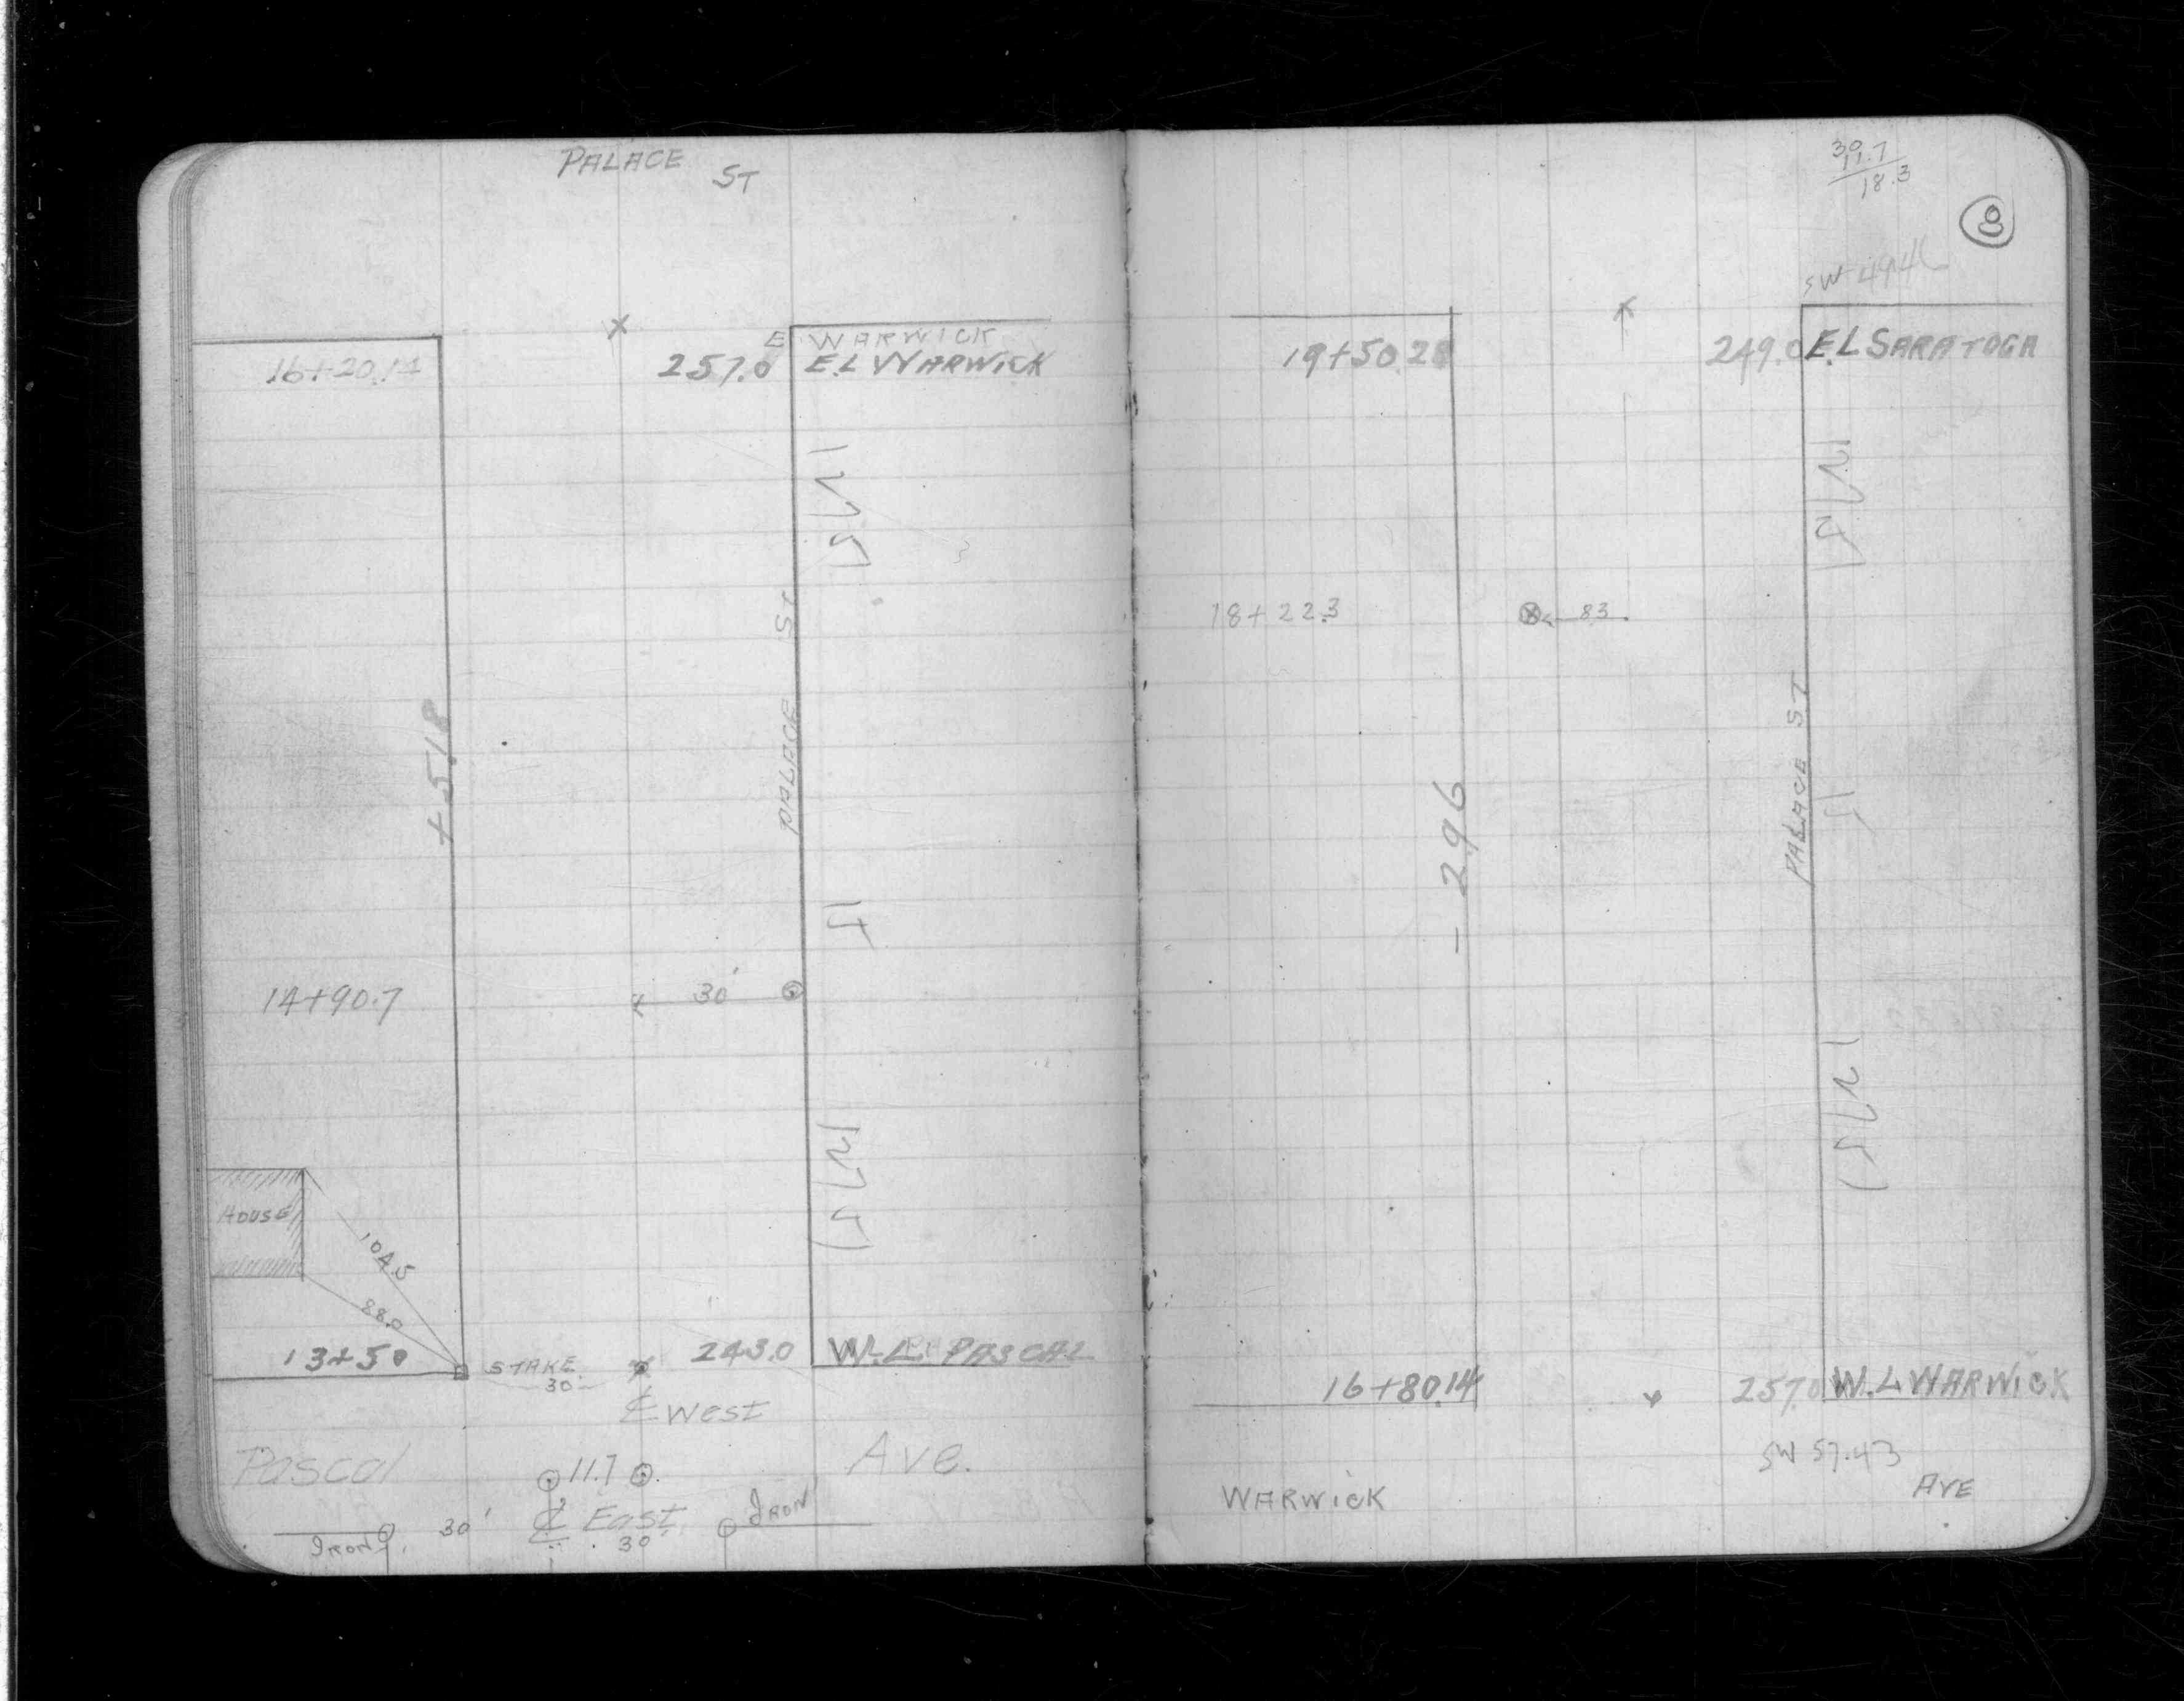 PALACE ST
E WARWICK
16+20.14
257.0
E.L WARWICK
+5.18
PALACE ST
14+90.7
30'
HOUSE
104.5
88.0
13+50
STAKE
30
243.0
W.L. PASCAL
℄ West
Pascal
11.7
Ave.
Iron
30'
℄ East
30'
Iron
30
11.7
18.3
8
SW 49.46
19+50.28
249.0
E.L SARATOGA
18+22.3
83
- 2.96
PALACE ST
16+80.14
257.0
W.L WARWICK
SW 57.43
WARWICK
AVE